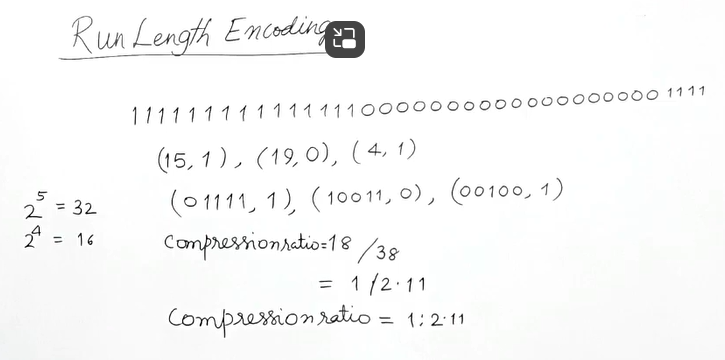 Run Length Encoding
1111111111111110000000000000000000 1111
(15, 1), (19, 0), (4, 1)
(01111, 1), (10011, 0), (00100, 1)
2^5 = 32
2^4 = 16
Compression ratio = 18 / 38
= 1 / 2.11
Compression ratio = 1 : 2.11